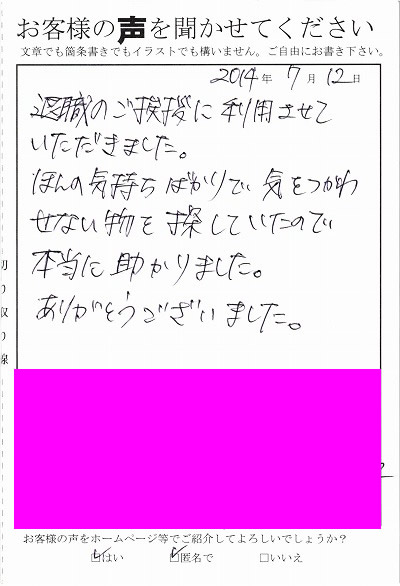 お客様の声を聞かせてください
文章でも箇条書きでもイラストでも構いません。ご自由にお書き下さい。
2014年 7月 12日
退職のご挨拶に利用させて
いただきました。
ほんの気持ちばかりで、気をつかわ
せない物を探していたので
本当に助かりました。
ありがとうございました。
切り取り線
お客様の声をホームページ等でご紹介してよろしいでしょうか?
☑はい ☑匿名で □いいえ